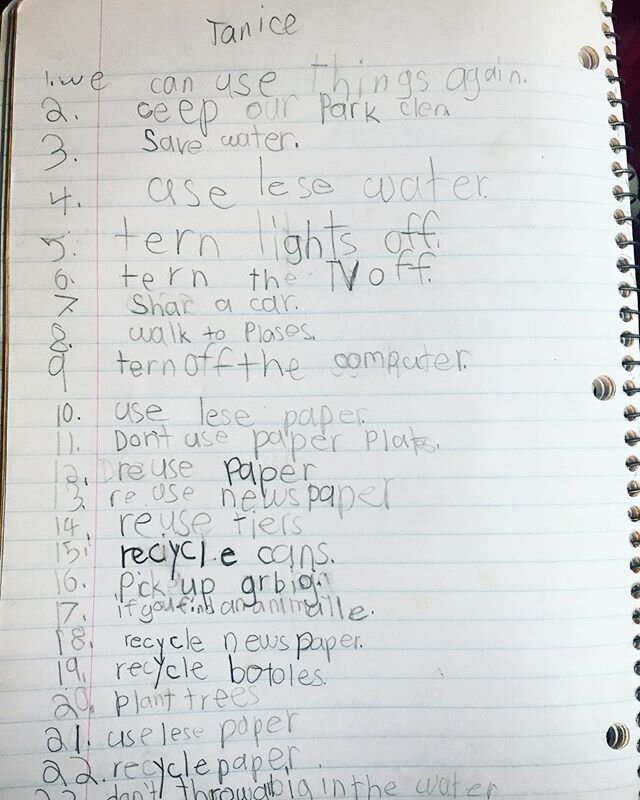 Janice
1. we can use things again.
2. ceep our Park clen
3. Save water.
4. use lese water.
5. tern lights off.
6. tern the TV off.
7 Shar a car.
8. walk to Plases.
9 tern off the computer.
10. use lese paper.
11. Don't use paper Plats.
12. reuse paper
13. re use newspaper
14. reuse tiers
15. recycle cans.
16. Pick up grbig.
17. if you find an animalle.
18. recycle newspaper.
19. recycle botoles.
20. plant trees
21. use lese paper
22. recycle paper.
23 don't throw in the water